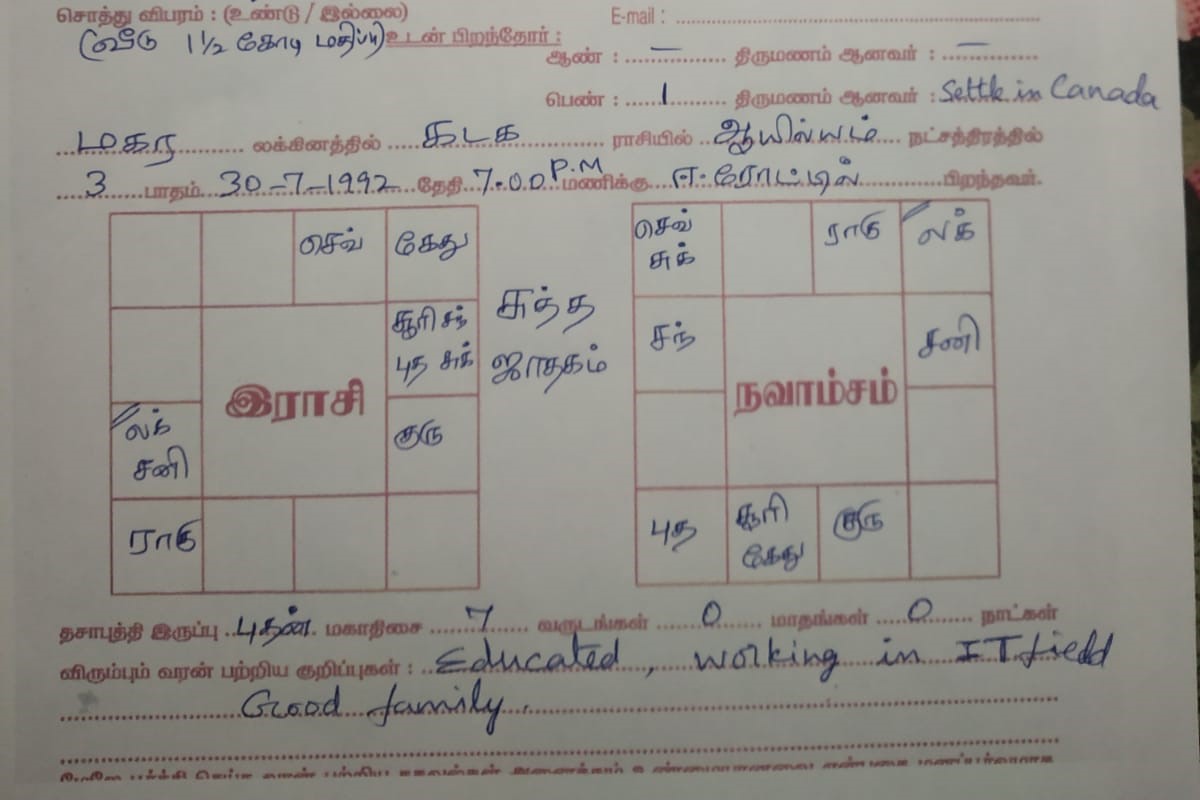 சொத்து விபரம் : (உண்டு / இல்லை) E-mail :
(வீடு 1½ கோடி மதிப்பு) உடன் பிறந்தோர் :
ஆண் : — திருமணம் ஆனவர் : —
பெண் : 1 திருமணம் ஆனவர் : Settle in Canada
மகர லக்கினத்தில் கடக ராசியில் ஆயில்யம் நட்சத்திரத்தில்
3 பாதம் 30-7-1992 தேதி 7-00 P.M மணிக்கு ஈரோட்டில் பிறந்தவர்.
செவ் கேது
சூரி சந்
புத சுக்
இராசி
லக்
சனி
குரு
ராகு
சுத்த
ஜாதகம்
செவ்
சுக்
ராகு லக்
சந் சனி
நவாம்சம்
புத சூரி
கேது
குரு
தசாபுத்தி இருப்பு புதன் மகாதிசை 7 வருடங்கள் 0 மாதங்கள் 0 நாட்கள்
விரும்பும் வரன் பற்றிய குறிப்புகள் : Educated, working in IT field
Good family.